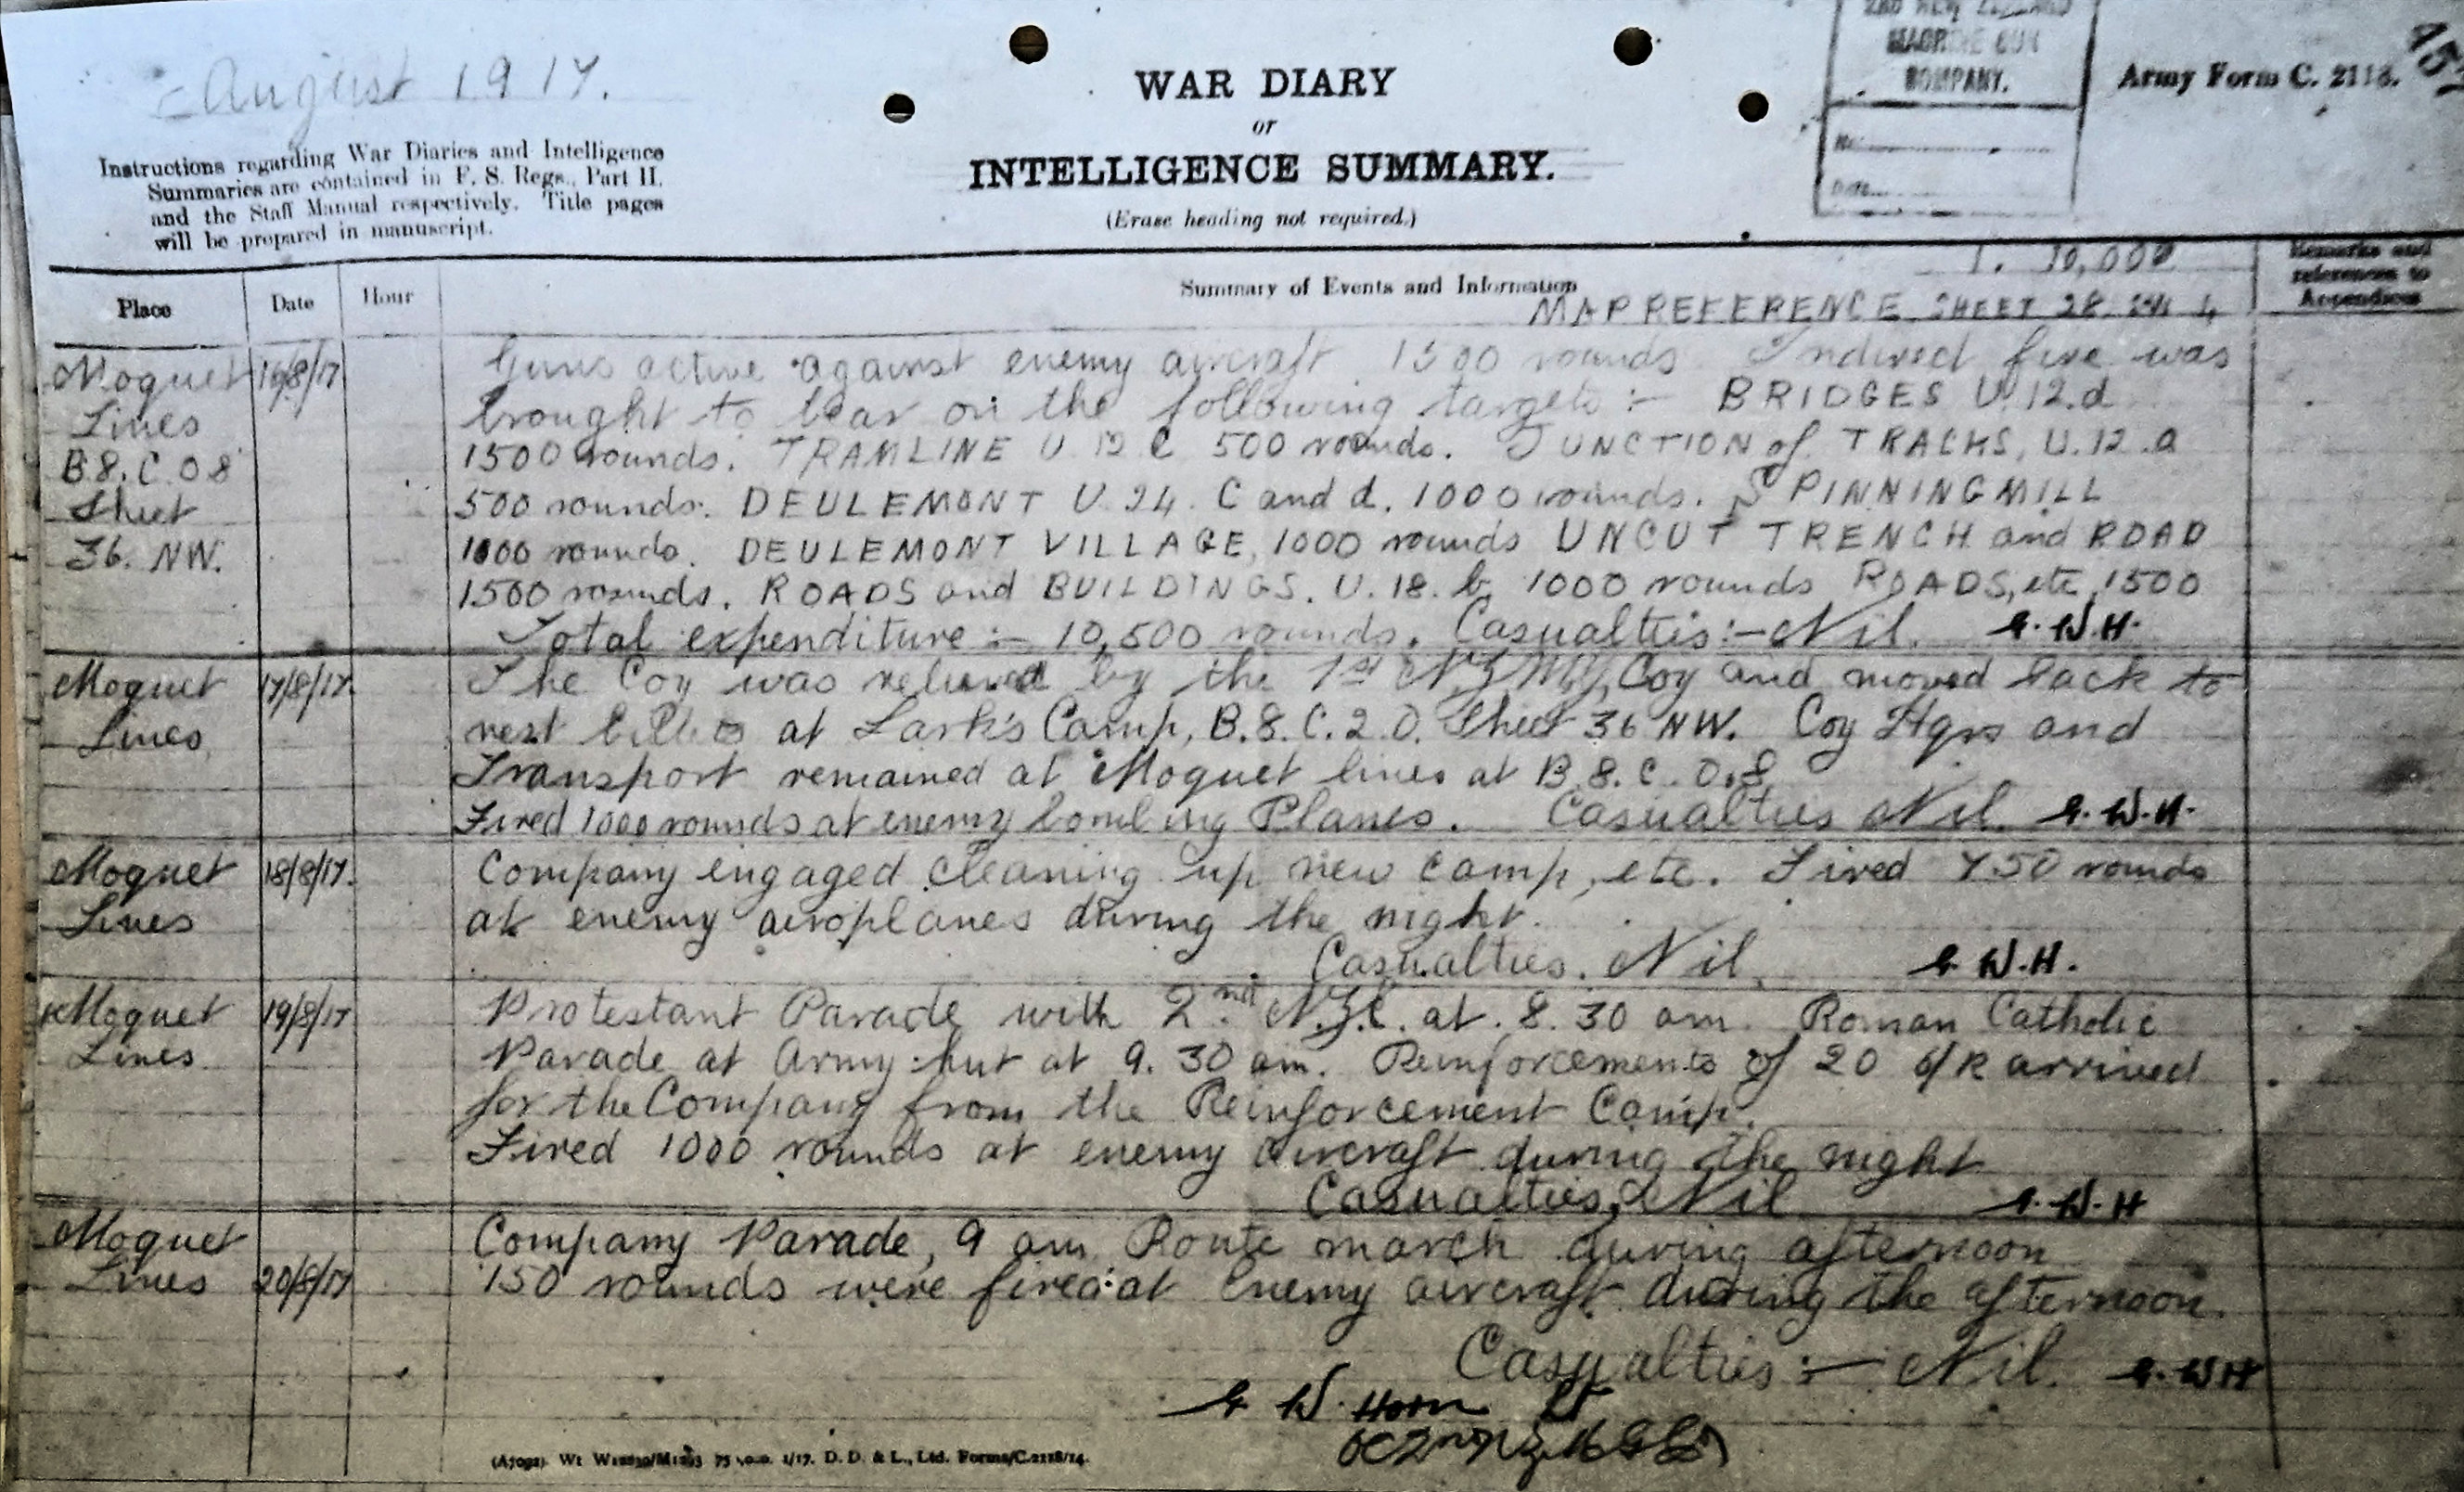 August 1917.
2nd NEW ZEALAND
MACHINE GUN
COMPANY.
No.
Date
Army Form C. 2118.
WAR DIARY
or
INTELLIGENCE SUMMARY.
(Erase heading not required.)
Instructions regarding War Diaries and Intelligence
Summaries are contained in F. S. Regs., Part II.
and the Staff Manual respectively. Title pages
will be prepared in manuscript.
Place Date Hour Summary of Events and Information Remarks and references to Appendices
1. 10,000
MAP REFERENCE SHEET 28. SW 4
Moquet 16/8/17 Guns active against enemy aircraft 1500 rounds Indirect fire was
Lines brought to bear on the following targets :- BRIDGES U.12.d
B8.C.08 1500 rounds. TRAMLINE U 12 C 500 rounds. JUNCTION of TRACKS, U.12.a
Sheet 500 rounds. DEULEMONT U.24. C and d. 1000 rounds. SPINNINGMILL
36. NW. 1000 rounds. DEULEMONT VILLAGE, 1000 rounds UNCUT TRENCH and ROAD
1500 rounds. ROADS and BUILDINGS. U.18.b 1000 rounds ROADS, etc, 1500
Total expenditure :- 10,500 rounds. Casualties:- Nil. W.H.
Moquet 17/8/17. The Coy was relieved by the 1st N.Z.M.G. Coy and moved back to
Lines rest billets at Lark's Camp, B.8.C.2.0. Sheet 36 NW. Coy Hqrs and
Transport remained at Moquet lines at B.8.C.0.8
Fired 1000 rounds at enemy bombing Planes. Casualties Nil. W.H.
Moquet 18/8/17. Company engaged cleaning up new camp, etc. Fired 750 rounds
Lines at enemy aeroplanes during the night.
Casualties. Nil. W.H.
Moquet 19/8/17 Protestant Parade with 2nd at 8.30 am. Roman Catholic
Lines Parade at Army hut at 9.30 am. Reinforcements of 20 o/R arrived
for the Company from the Reinforcement Camp.
Fired 1000 rounds at enemy aircraft during the night
Casualties, Nil W.H
Moquet Company Parade, 9 am Route march during afternoon
Lines 20/8/17 150 rounds were fired at Enemy aircraft during the afternoon.
Casualties :- Nil. W H
W. Horn Lt
OC 2nd NZ M G Coy
D. D. & L., Ltd. Forms/C.2118/14.